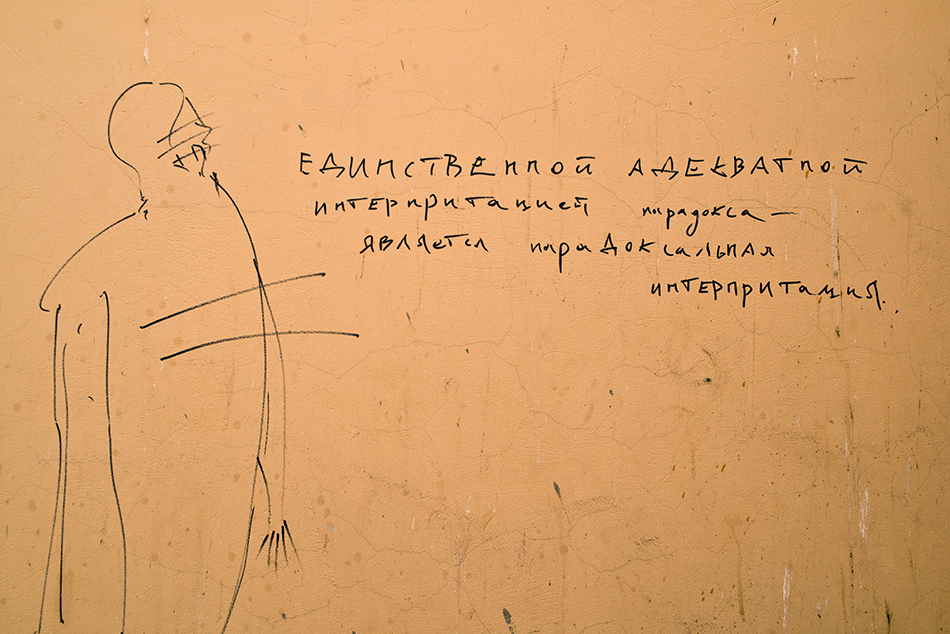 ЕДИНСТВЕННОЙ АДЕКВАТНОЙ
интерпритацией парадокса —
является парадоксальная
интерпритация.